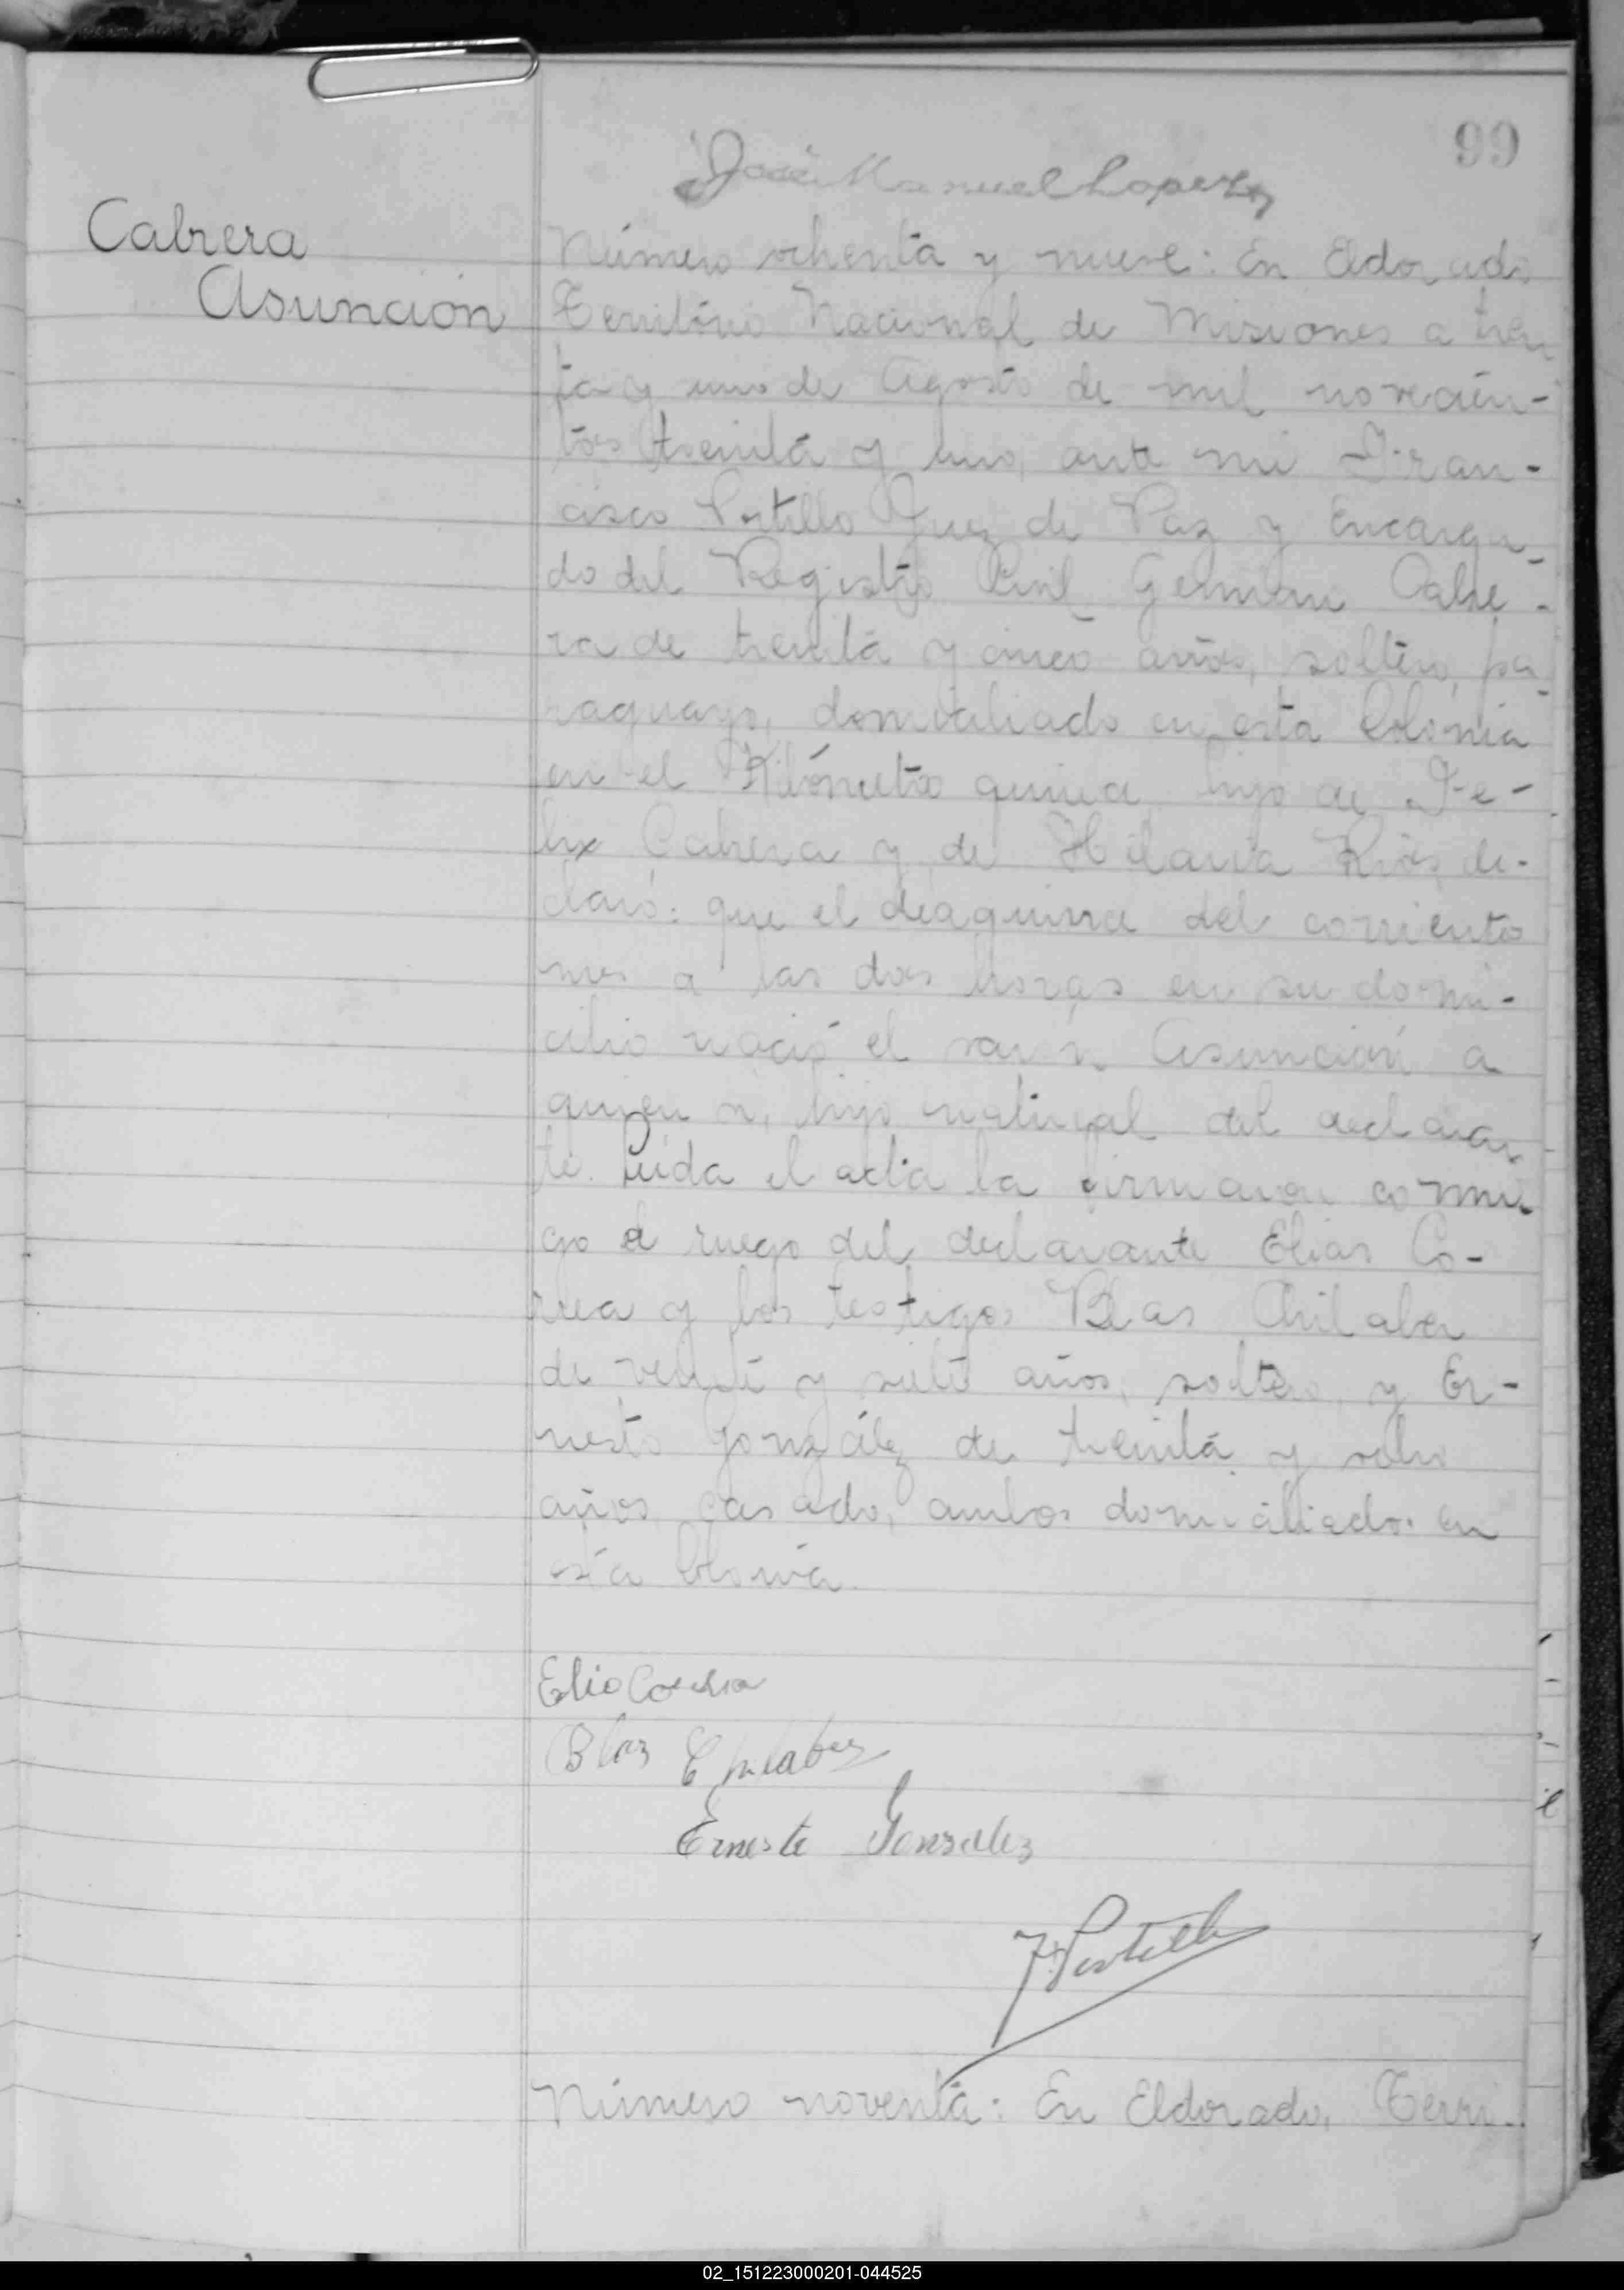 99
José Manuel Lopez
Cabrera
Asunción
Número ochenta y nueve: En Eldorado
Território Nacional de Misiones a trein
ta y uno de Agosto de mil novecien-
tos treinta y uno, ante mi Fran-
cisco Portillo Juez de Paz y Encarga-
do del Registro Civil German Cabre-
ra de treinta y cinco años, soltero, pa-
raguayo, domiciliado en esta Colonia
en el Kilómetro quince hijo de Fe-
lix Cabrera y de Hilaria Rios, de-
claró: que el dia quince del corriente
mes a las dos horas en su domi-
cilio nació el varón Asunción a
quien vi, hijo natural del declaran
te. Leida el acta la firmaron conmi-
go a ruego del declarante Elias Co-
rrea y los testigos Blas Chilaber
de veinte y siete años, soltero, y Er-
nesto González de treinta y ocho
años casado, ambos domiciliados en
esta Colonia.
Elio Correa
Blas Chilaber
Ernesto Gonzalez
F. Portillo
Número noventa: En Eldorado, Terri-
02_151223000201-044525